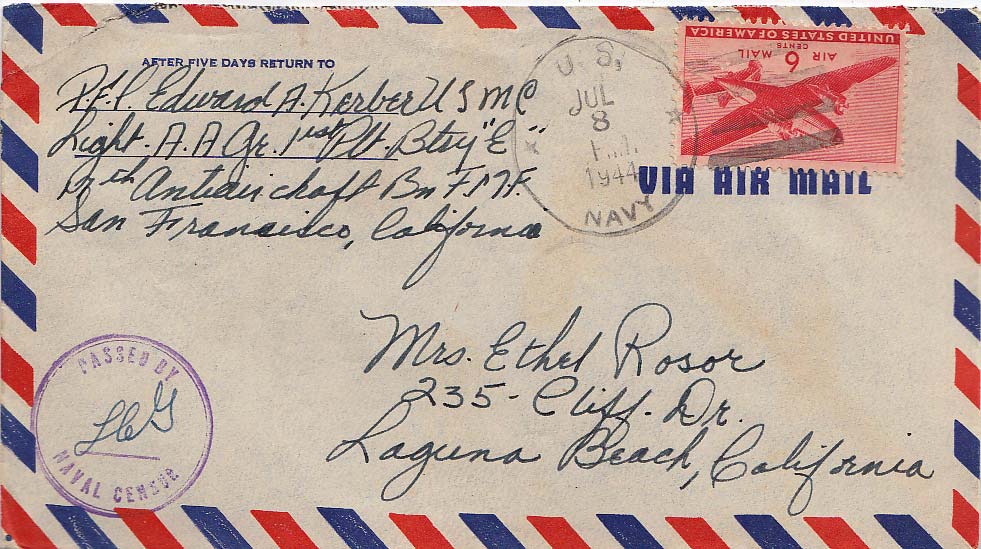 AFTER FIVE DAYS RETURN TO
P.F.C. Edward A. Kerber U S M C
Light. A. A Gr. 1st Plt. Btry "E"
Antiaircraft Bn F.M.F.
San Francisco, California
U. S. NAVY
JUL
8
1944
UNITED STATES OF AMERICA
6 CENTS AIR MAIL
VIA AIR MAIL
Mrs. Ethel Rosor
235- Cliff. Dr.
Laguna Beach, California
PASSED BY
NAVAL CENSOR